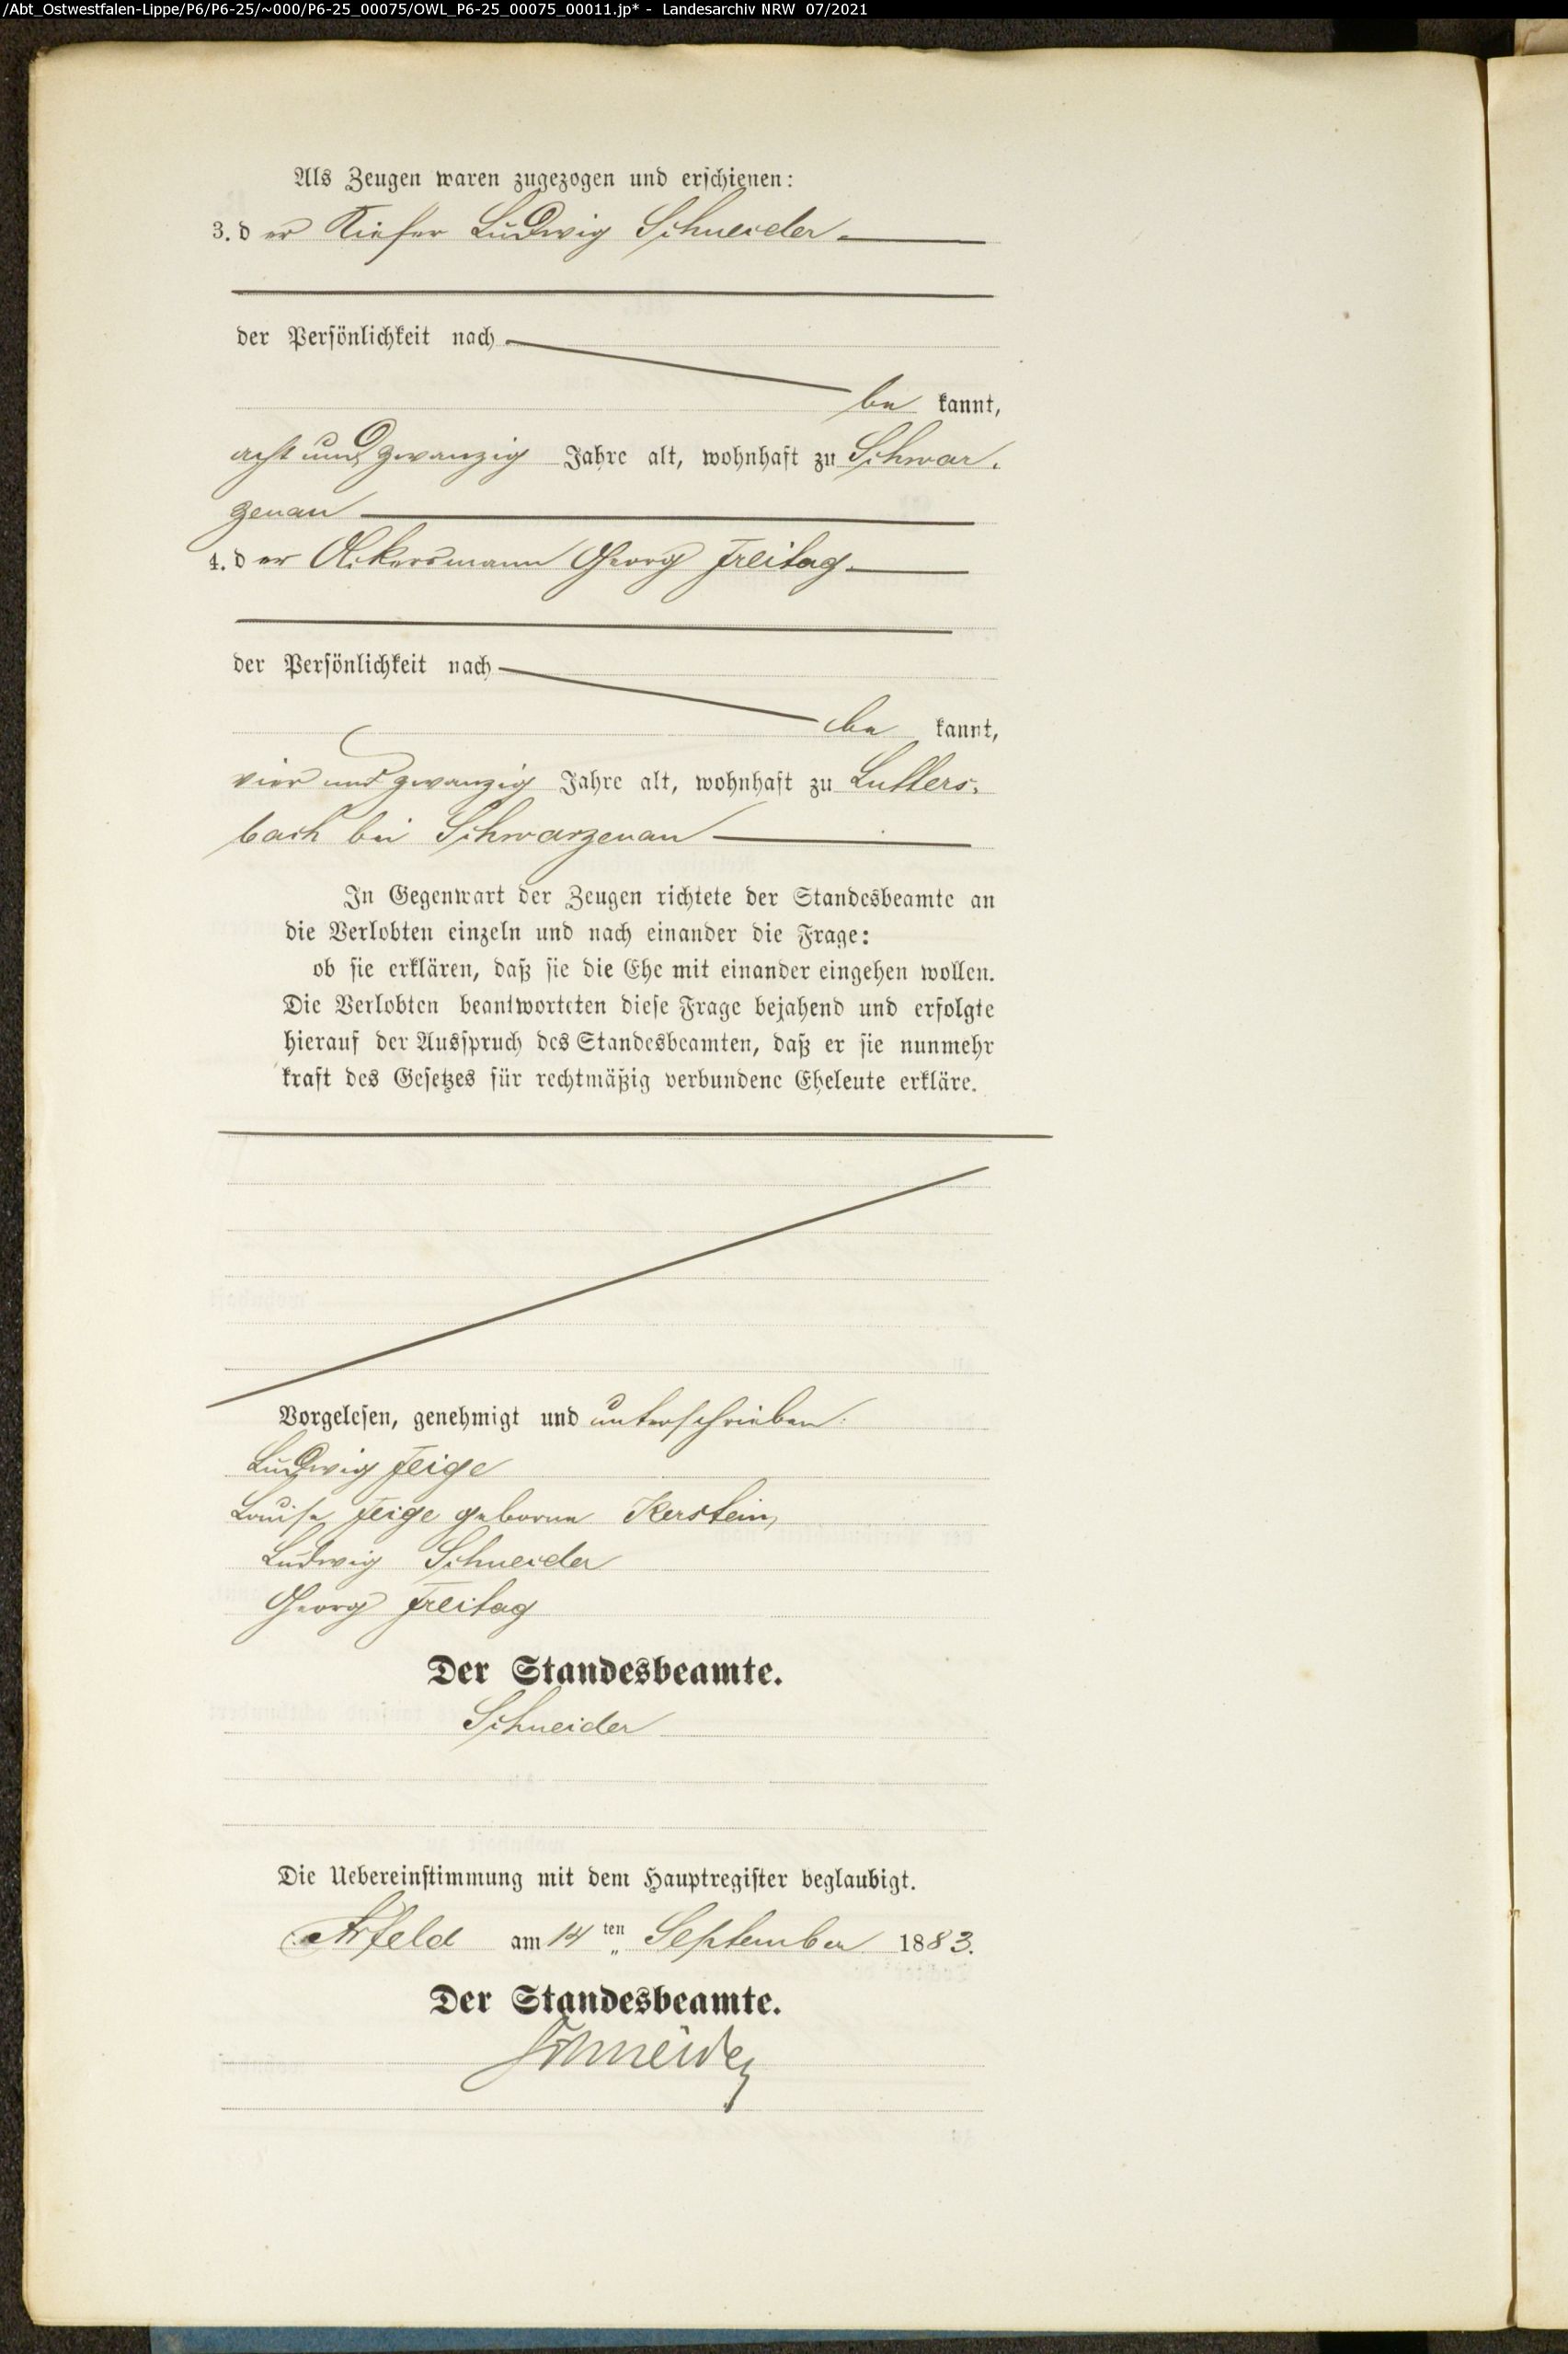 /Abt_Ostwestfalen-Lippe/P6/P6-25/~000/P6-25_00075/OWL_P6-25_00075_00011.jp* - Landesarchiv NRW 07/2021
Als Zeugen waren zugezogen und erschienen:
3. d er Kiefer Ludwig Schneider
der Persönlichkeit nach
be kannt,
acht und zwanzig Jahre alt, wohnhaft zu Schwar-
zenau
4. d er Ackersmann Georg Freitag
der Persönlichkeit nach
be kannt,
vier und zwanzig Jahre alt, wohnhaft zu Lutters-
bach bei Schwarzenau
In Gegenwart der Zeugen richtete der Standesbeamte an
die Verlobten einzeln und nach einander die Frage:
ob sie erklären, daß sie die Ehe mit einander eingehen wollen.
Die Verlobten beantworteten diese Frage bejahend und erfolgte
hierauf der Ausspruch des Standesbeamten, daß er sie nunmehr
kraft des Gesetzes für rechtmäßig verbundene Eheleute erkläre.
Vorgelesen, genehmigt und unterschrieben:
Ludwig Feige
Louise Feige geborne Kerstein
Ludwig Schneider
Georg Freitag
Der Standesbeamte.
Schneider
Die Uebereinstimmung mit dem Hauptregister beglaubigt.
Arfeld am 14 ten September 1883.
Der Standesbeamte.
Schneider